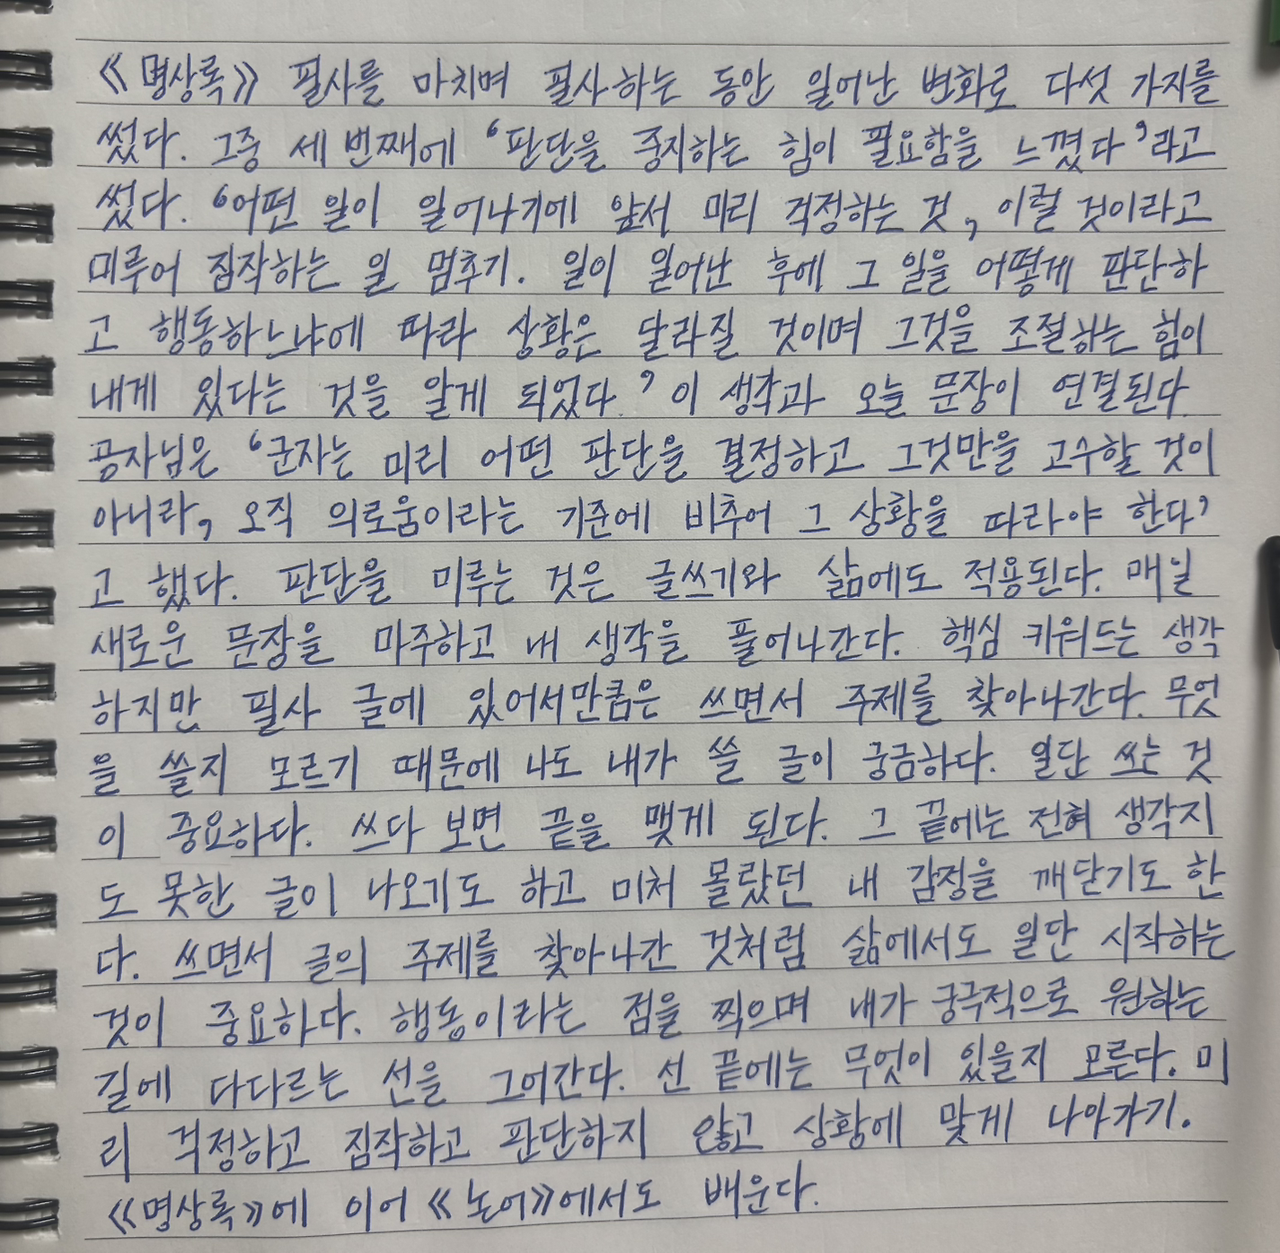 《명상록》 필사를 마치며 필사하는 동안 일어난 변화로 다섯 가지를
썼다. 그중 세 번째에 ‘판단을 중지하는 힘이 필요함을 느꼈다’라고
썼다. ‘어떤 일이 일어나기에 앞서 미리 걱정하는 것, 이럴 것이라고
미루어 짐작하는 일 멈추기. 일이 일어난 후에 그 일을 어떻게 판단하
고 행동하느냐에 따라 상황은 달라질 것이며 그것을 조절하는 힘이
내게 있다는 것을 알게 되었다.’ 이 생각과 오늘 문장이 연결된다.
공자님은 ‘군자는 미리 어떤 판단을 결정하고 그것만을 고수할 것이
아니라, 오직 의로움이라는 기준에 비추어 그 상황을 따라야 한다’
고 했다. 판단을 미루는 것은 글쓰기와 삶에도 적용된다. 매일
새로운 문장을 마주하고 내 생각을 풀어나간다. 핵심 키워드는 생각
하지만 필사 글에 있어서만큼은 쓰면서 주제를 찾아나간다. 무엇
을 쓸지 모르기 때문에 나도 내가 쓸 글이 궁금하다. 일단 쓰는 것
이 중요하다. 쓰다 보면 끝을 맺게 된다. 그 끝에는 전혀 생각지
도 못한 글이 나오기도 하고 미처 몰랐던 내 감정을 깨닫기도 한
다. 쓰면서 글의 주제를 찾아나간 것처럼 삶에서도 일단 시작하는
것이 중요하다. 행동이라는 점을 찍으며 내가 궁극적으로 원하는
길에 다다르는 선을 그어간다. 선 끝에는 무엇이 있을지 모른다. 미
리 걱정하고 짐작하고 판단하지 않고 상황에 맞게 나아가기.
《명상록》에 이어 《논어》에서도 배운다.